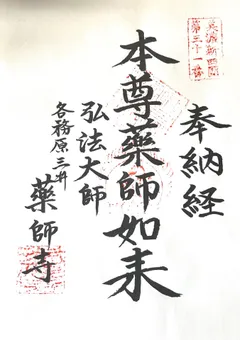 奉納経
本尊薬師如来
弘法大師
各務原三井
薬師寺
美濃新四国
第三十一番